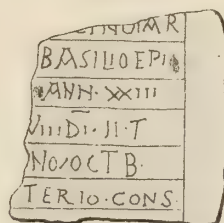 BASILIO EPI
ANN · XXIII
VIII DI · II · T
NO OCT B ·
TERIO · CONS